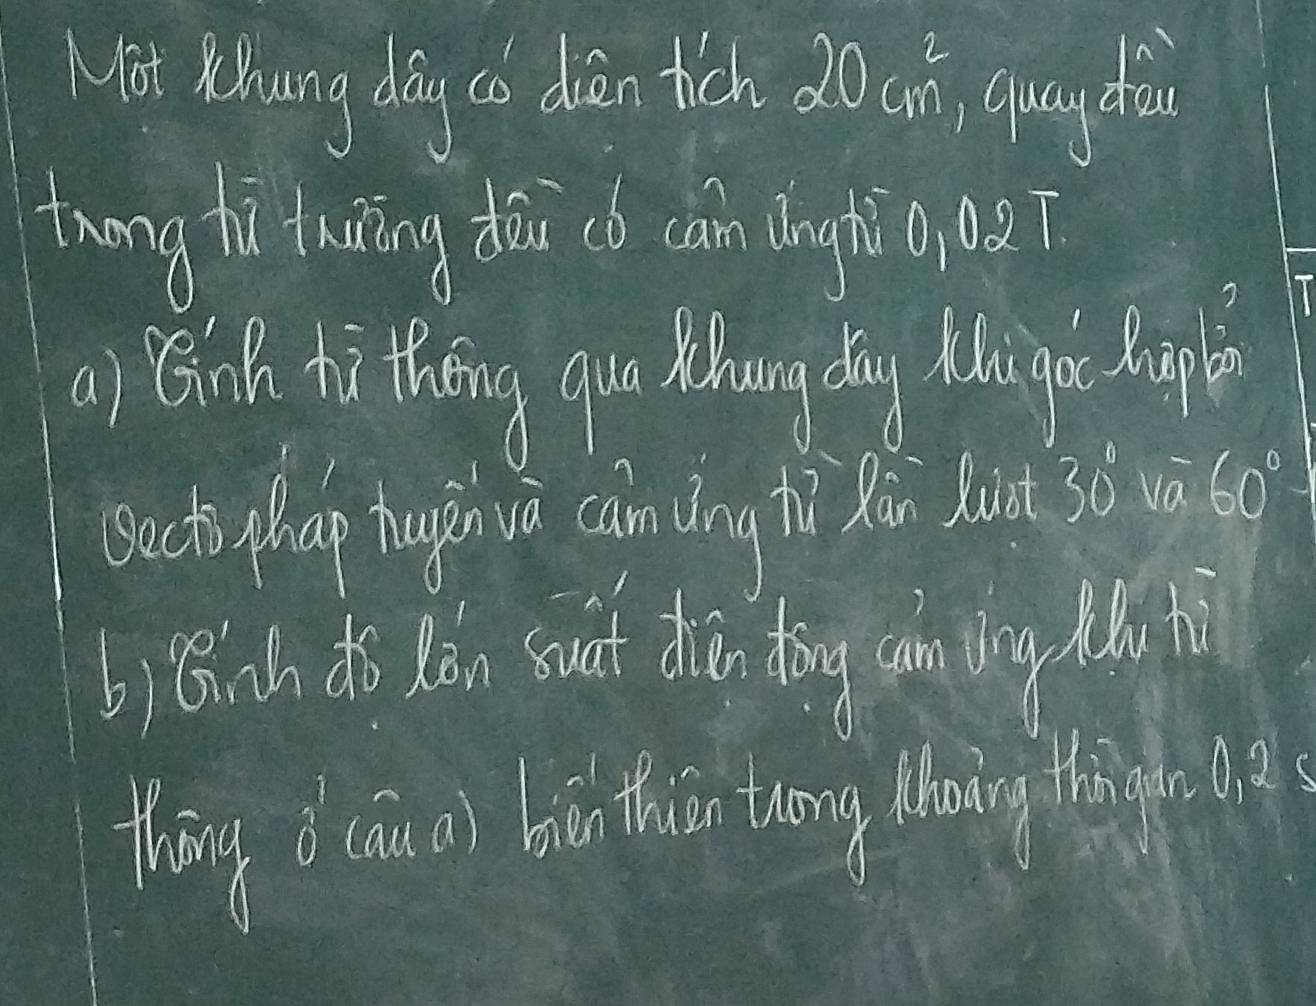 Một khung dây có diện tích 20 cm², quay đều
trong từ trường đều có cảm ứng từ 0,02T.
a) Tính từ thông qua khung dây khi góc hợp bởi
vectơ pháp tuyến và cảm ứng từ lần lượt 30° và 60°
b) Tính độ lớn suất điện động cảm ứng khi từ
thông ở câu a) biến thiên trong khoảng thời gian 0,2 s
T